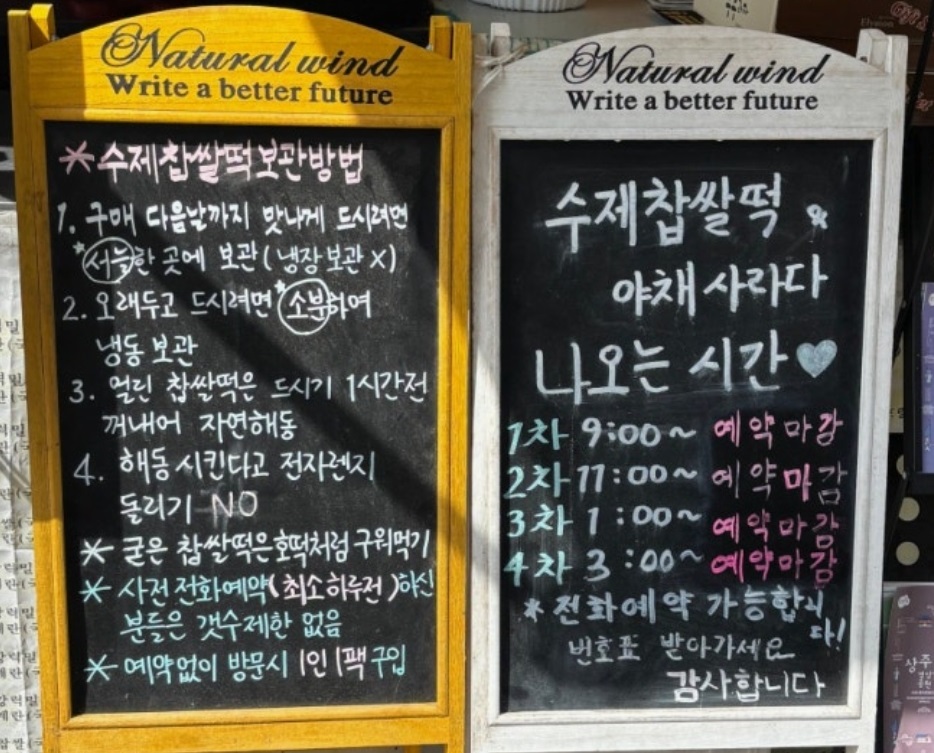 Natural wind
Write a better future
* 수제찹쌀떡 보관방법
1. 구매 다음날까지 맛나게 드시려면
*서늘한 곳에 보관 (냉장보관 X)
2. 오래두고 드시려면 *소분하여
냉동 보관
3. 얼린 찹쌀떡은 드시기 1시간전
꺼내어 자연해동
4. 해동 시킨다고 전자렌지
돌리기 NO
* 굳은 찹쌀떡은 호떡처럼 구워먹기
* 사전 전화예약 (최소하루전) 하신
분들은 갯수제한 없음
* 예약없이 방문시 1인1팩 구입
Natural wind
Write a better future
수제찹쌀떡 &
야채 사라다
나오는 시간♥
1차 9:00~ 예약마감
2차 11:00~ 예약마감
3차 1:00~ 예약마감
4차 3:00~ 예약마감
* 전화예약 가능합니
다!
번호표 받아가세요
감사합니다
Elysion
상주